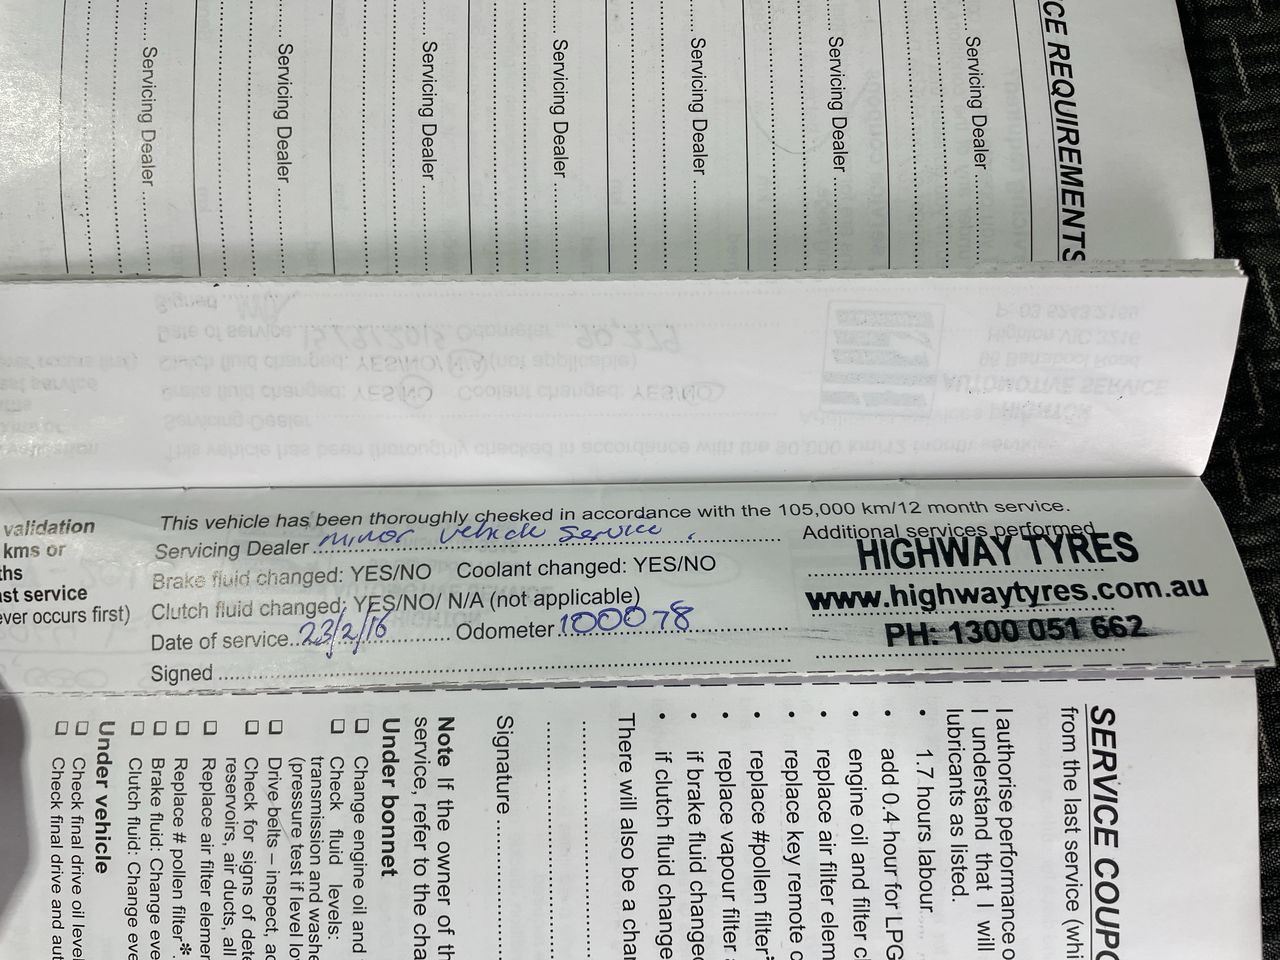 CE REQUIREMENTS
Servicing Dealer
Servicing Dealer
Servicing Dealer
Servicing Dealer
Servicing Dealer
Servicing Dealer
Servicing Dealer
This vehicle has been thoroughly checked in accordance with the 90,000 km/12 month service.
Servicing Dealer
Brake fluid changed: YES/NO Coolant changed: YES/NO
Clutch fluid changed: YES/NO/ N/A (not applicable)
Date of service Odometer
Signed
HIGHTON
AUTOMOTIVE SERVICE
Highton VIC 3216
validation
kms or
ths
ast service
ever occurs first)
This vehicle has been thoroughly checked in accordance with the 105,000 km/12 month service.
Servicing Dealer minor vehicle service.
Brake fluid changed: YES/NO Coolant changed: YES/NO
Clutch fluid changed: YES/NO/ N/A (not applicable)
Date of service 23/2/16 Odometer 100078
Signed
Additional services performed
HIGHWAY TYRES
www.highwaytyres.com.au
PH: 1300 051 662
SERVICE COUPO
from the last service (whi
I authorise performance o
I understand that I will
lubricants as listed.
• 1.7 hours labour
• add 0.4 hour for LPG
• engine oil and filter c
• replace air filter elem
• replace key remote c
• replace #pollen filter*
• replace vapour filter
• if brake fluid changed
• if clutch fluid change
There will also be a char
Signature
Note If the owner of th
service, refer to the cha
Under bonnet
☐ Change engine oil and
☐ Check fluid levels:
transmission and washe
(pressure test if level lo
☐ Drive belts – inspect, ad
☐ Check for signs of dete
reservoirs, air ducts, all
☐ Replace air filter elemer
☐ Replace # pollen filter*.
☐ Brake fluid: Change eve
☐ Clutch fluid: Change eve
Under vehicle
☐ Check final drive oil level
☐ Check final drive and aut